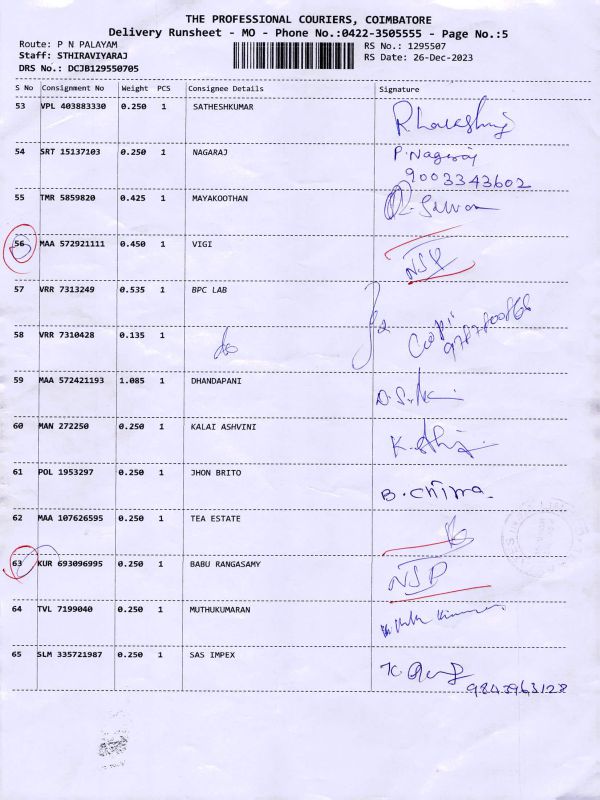 THE PROFESSIONAL COURIERS, COIMBATORE
Delivery Runsheet - MO - Phone No.:0422-3505555 - Page No.:5
Route: P N PALAYAM
Staff: STHIRAVIYARAJ
DRS No.: DCJB129550705
RS No.: 1295507
RS Date: 26-Dec-2023
S No Consignment No Weight PCS Consignee Details Signature
53 VPL 403883330 0.250 1 SATHESHKUMAR
54 SRT 15137103 0.250 1 NAGARAJ P. Nagaraj
9003343602
55 TMR 5859820 0.425 1 MAYAKOOTHAN
56 MAA 572921111 0.450 1 VIGI
57 VRR 7313249 0.535 1 BPC LAB
58 VRR 7310428 0.135 1 do Gopi
59 MAA 572421193 1.085 1 DHANDAPANI
60 MAN 272250 0.250 1 KALAI ASHVINI
61 POL 1953297 0.250 1 JHON BRITO B. Chitra
62 MAA 107626595 0.250 1 TEA ESTATE
63 KUR 693096995 0.250 1 BABU RANGASAMY NSP
64 TVL 7199040 0.250 1 MUTHUKUMARAN
65 SLM 335721987 0.250 1 SAS IMPEX
9843963128